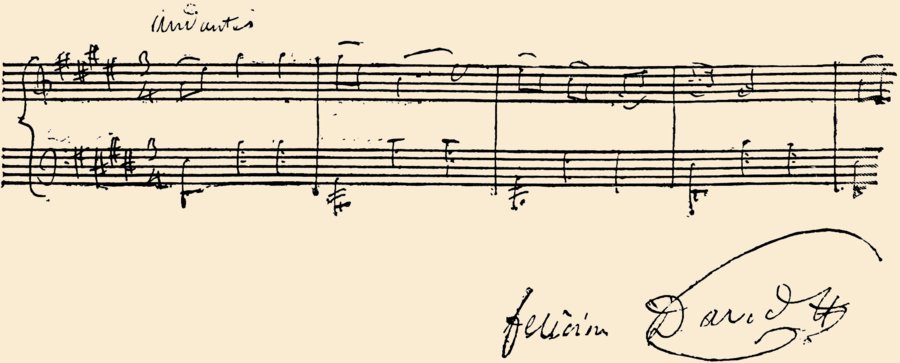 Andante
3
4
3
4
felicien David